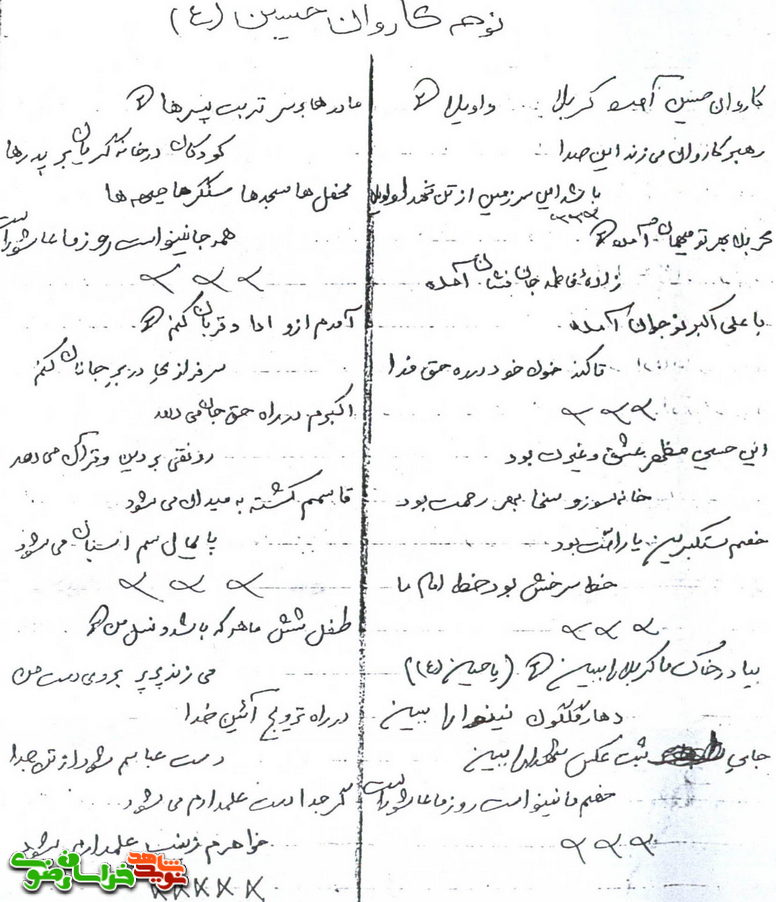 نوحه کاروان حسین (ع)
کاروان حسین آمد کربلا واویلا ۲
رهبر کاروان می زند این صدا
باشد این سرزمین از تن شهدا
کربلا بهر تو میهمان آمده ۲
زادهٔ فاطمه جان فشان آمده
با علی اکبر نوجوان آمده
تا کند خون خود در ره حق فدا
این حسین مظهر عشق و غیرت بود
خانه سوز و سخا بهر رحمت بود
خصم مستکبرین یار امت بود
خط سرخش بود خط امام ما
بیا در خاک ما کربلا را ببین ۲ (یا حسین (ع))
دهار گلگون نینوا را ببین
جای ثبت عکس شهدا را ببین
خصم ما نینوا است روز ما عاشورا است
مادرها بر سر تربت پسرها ۲
کودکان در خانه گریان بر پدرها
محفل ها مسجدها سنگرها جبهه ها
همه جا نینوا است روز ما عاشورا است
آمدم از و ادا قربان کنم ۲
سرفرازی در بر جانان کنم
اکبرم در راه حق جان می دهد
رونقی بر دین و قرآن می دهد
قاسمم کشته به میدان می شود
پایمال سم اسبان می شود
طفل شش ماهه که باشد نسل من ۲
می زند پرپر بروی دست من
در راه ترویج آئین خدا
دست عباسم شود از تن جدا
گر جدا دست علمدارم می شود
خواهرم زینب علمدارم می شود
نوید شاهد خراسان رضوی